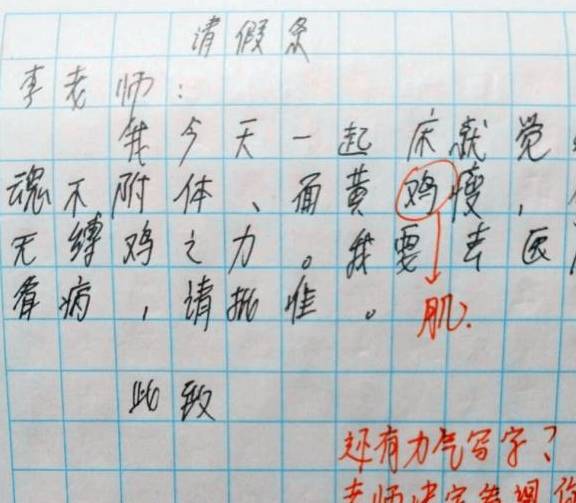 请假条
李老师：
我今天一起床就觉
魂不附体、面黄鸡瘦，
无缚鸡之力。我要去医
看病，请批准。
肌
此致
还有力气写字？
老师决定管理你